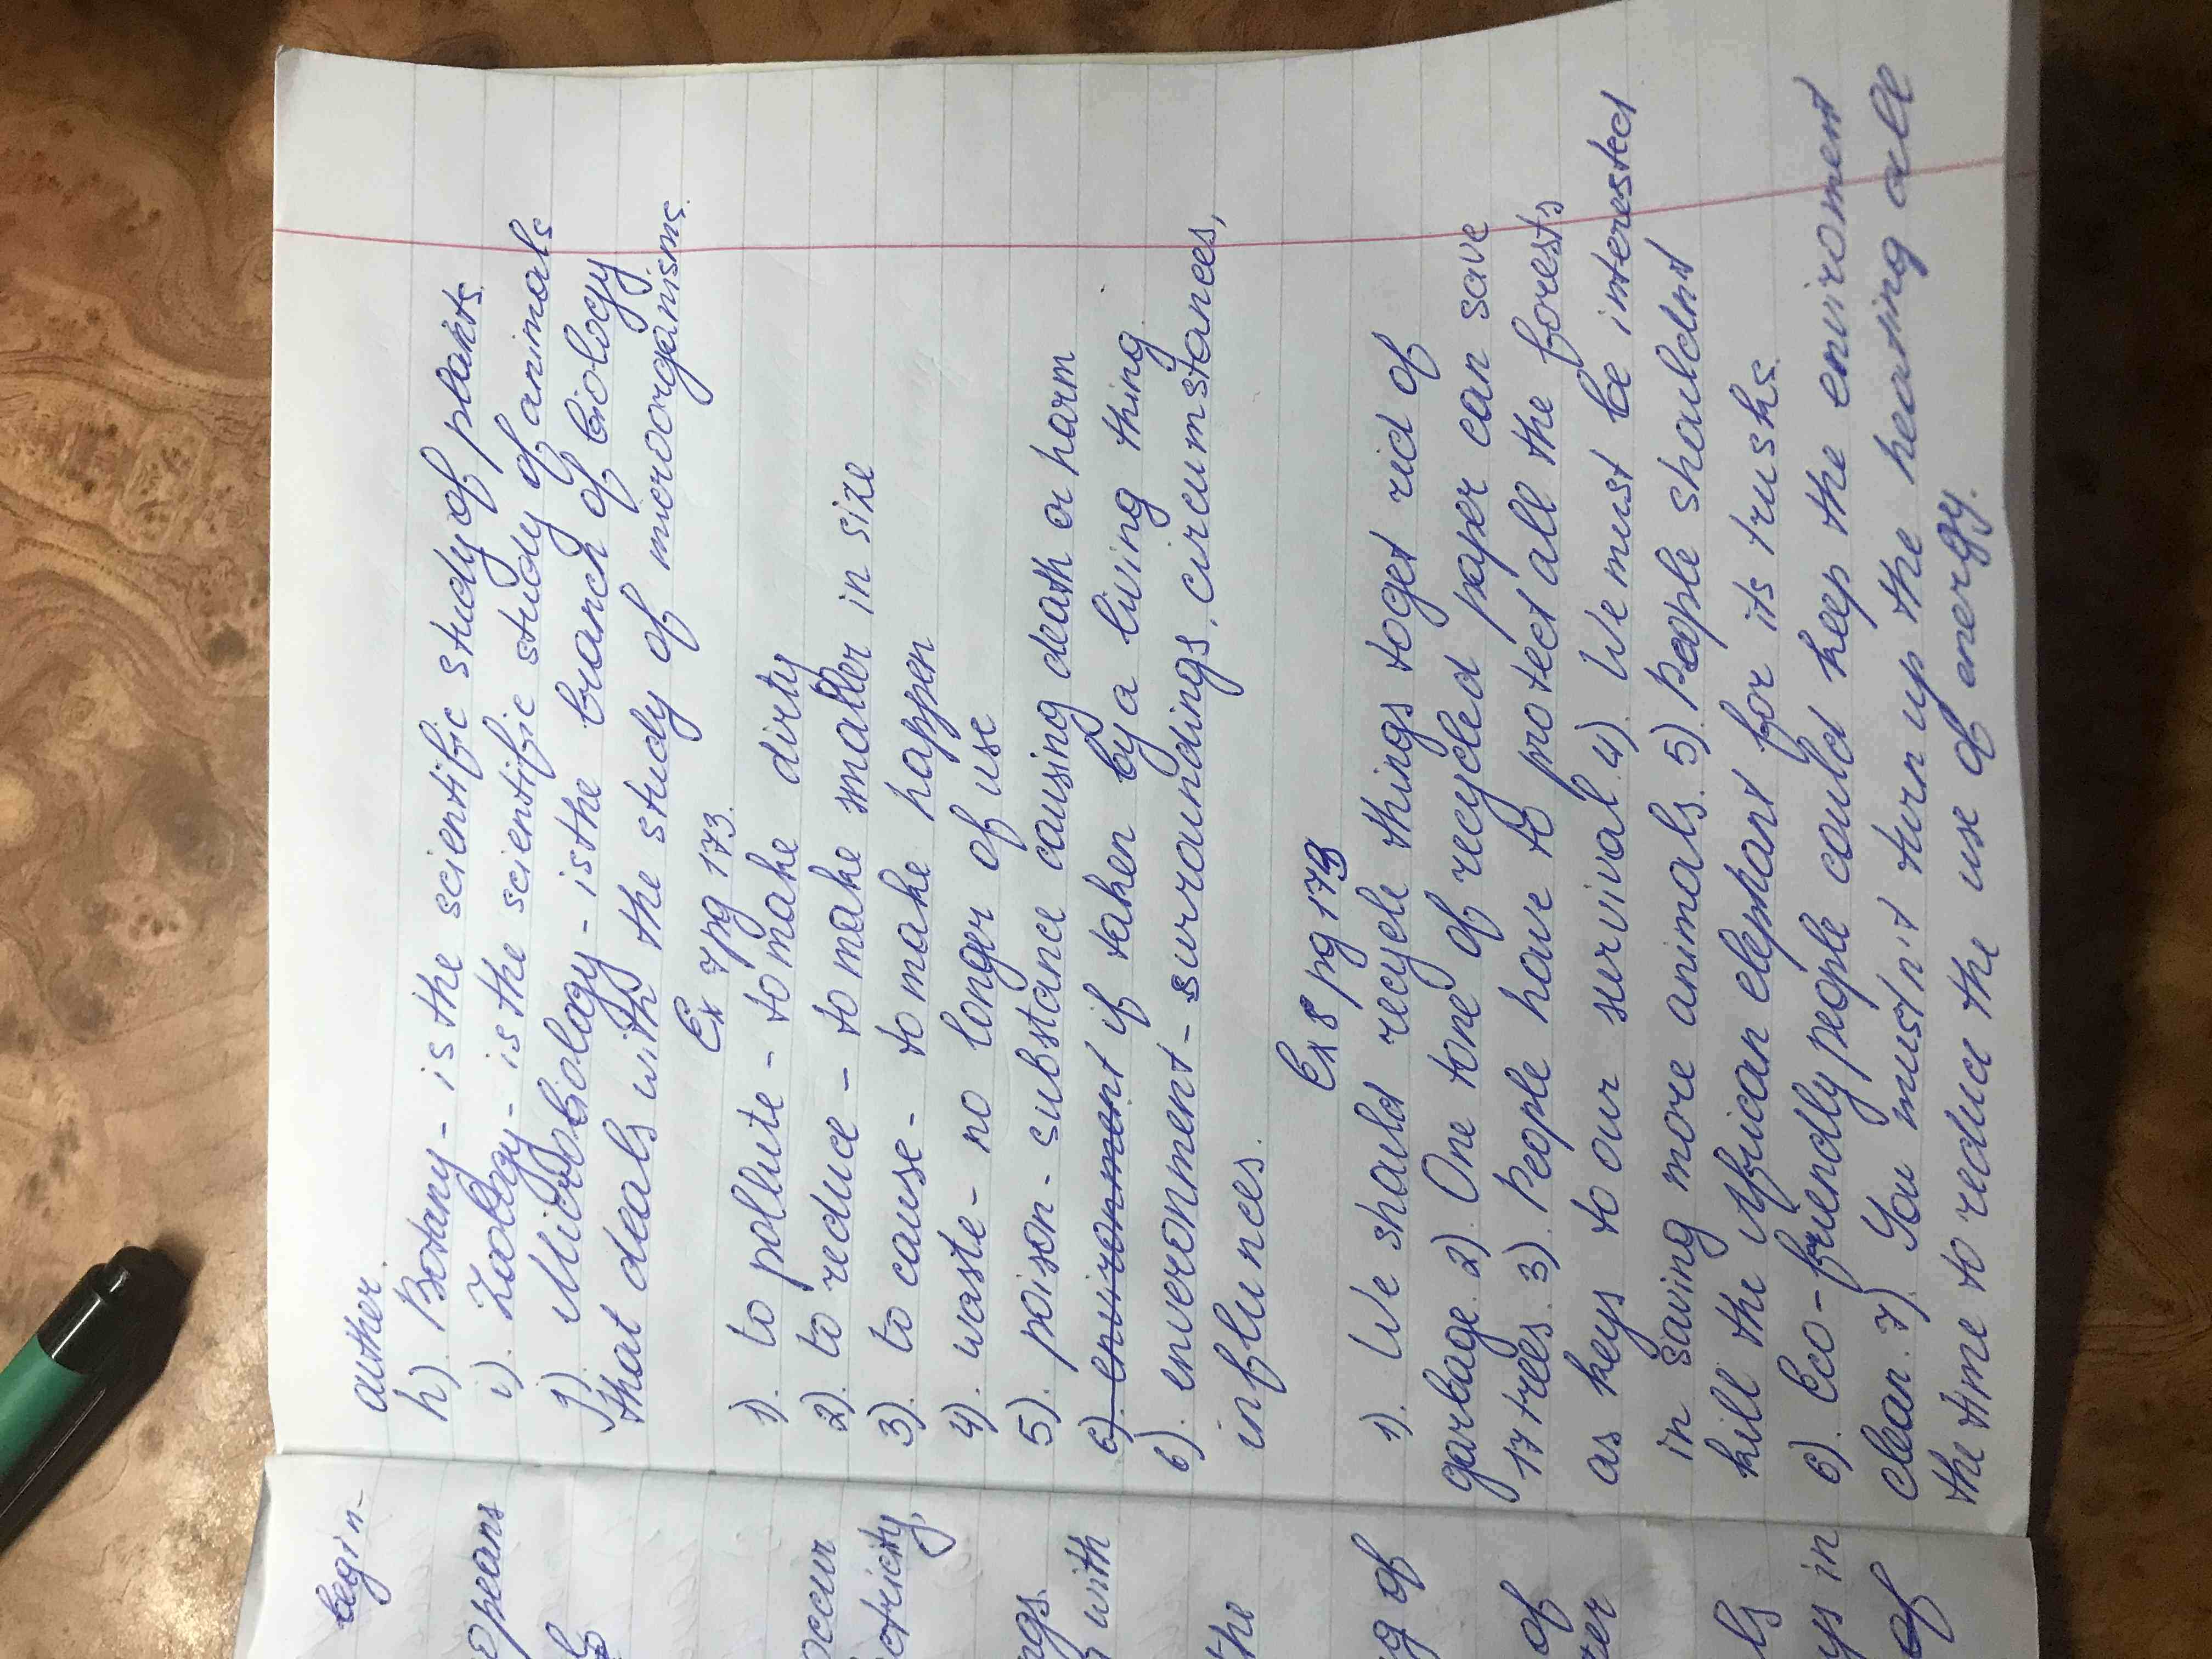 begin-
auther.
h). Botany - is the scientific study of plants.
i). Zoology - is the scientific study of animals
j). Microbiology - is the branch of biology
that deals with the study of microorganisms.
Ex 7 pg 173.
1). to pollute - to make dirty
2). to reduce - to make smaller in size
3). to cause - to make happen
4). waste - no longer of use
5). poison - substance causing death or harm
6). environment if taken by a living thing.
6). enveronment - surroundings, circumstances,
influnces.
Ex 8 pg 173
1). We should recycle things to get rid of
garbage. 2). One tone of recycled paper can save
17 trees. 3). People have to protect all the forests
as keys to our survival. 4). We must be interested
in saving more animals. 5). People shouldnt
kill the African elephant for its trusks.
6). Eco-friendly people could keep the enviroment
clean. 7). You mustn't turn up the heating all
the time to reduce the use of energy.
occur
with
the
of
of
ys in
of